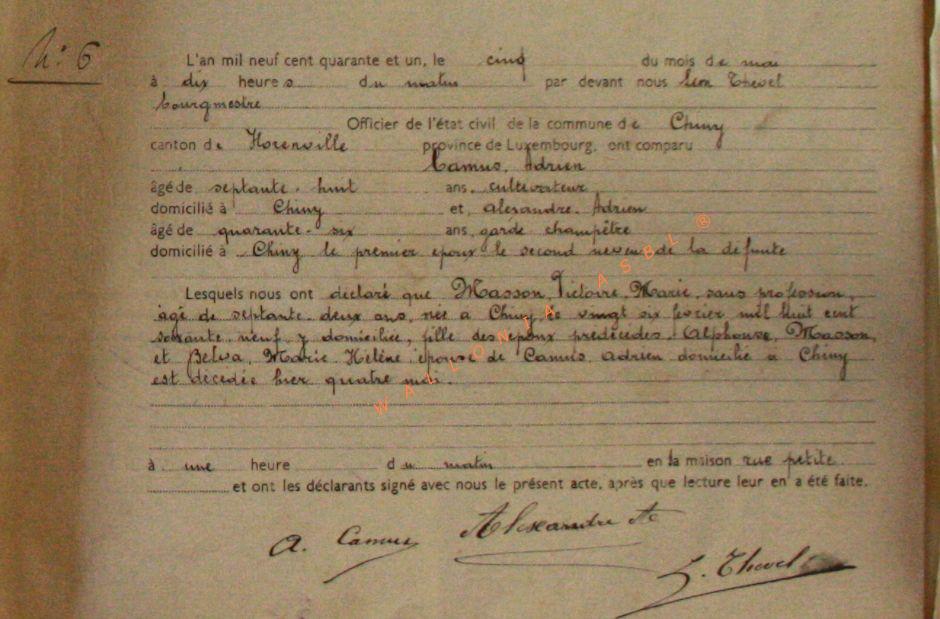 N° 6
L'an mil neuf cent quarante et un, le cinq du mois de mai
à dix heures du matin par devant nous Léon Thevel
bourgmestre
Officier de l'état civil de la commune de Chiny
canton de Florenville province de Luxembourg, ont comparu
Camus, Adrien
âgé de septante-huit ans, cultivateur
domicilié à Chiny et, Alexandre, Adrien
âgé de quarante-six ans, garde champêtre
domicilié à Chiny le premier epoux le second neveu de la défunte
Lesquels nous ont déclaré que Masson, Victoire, Marie, sans profession,
âgé de septante-deux ans, née à Chiny, le vingt six fevrier mil huit cent
soixante neuf, y domiciliée, fille des epoux prédécédés Alphonse, Masson,
et Marie Hélène épouse de Camus, Adrien domicilié à Chiny
est décédée hier quatre mai.
à une heure du matin en la maison rue petite
et ont les déclarants signé avec nous le présent acte, après que lecture leur en a été faite.
A. Camus Alexandre A
L. Thevel
WALLONIA ASBL ®